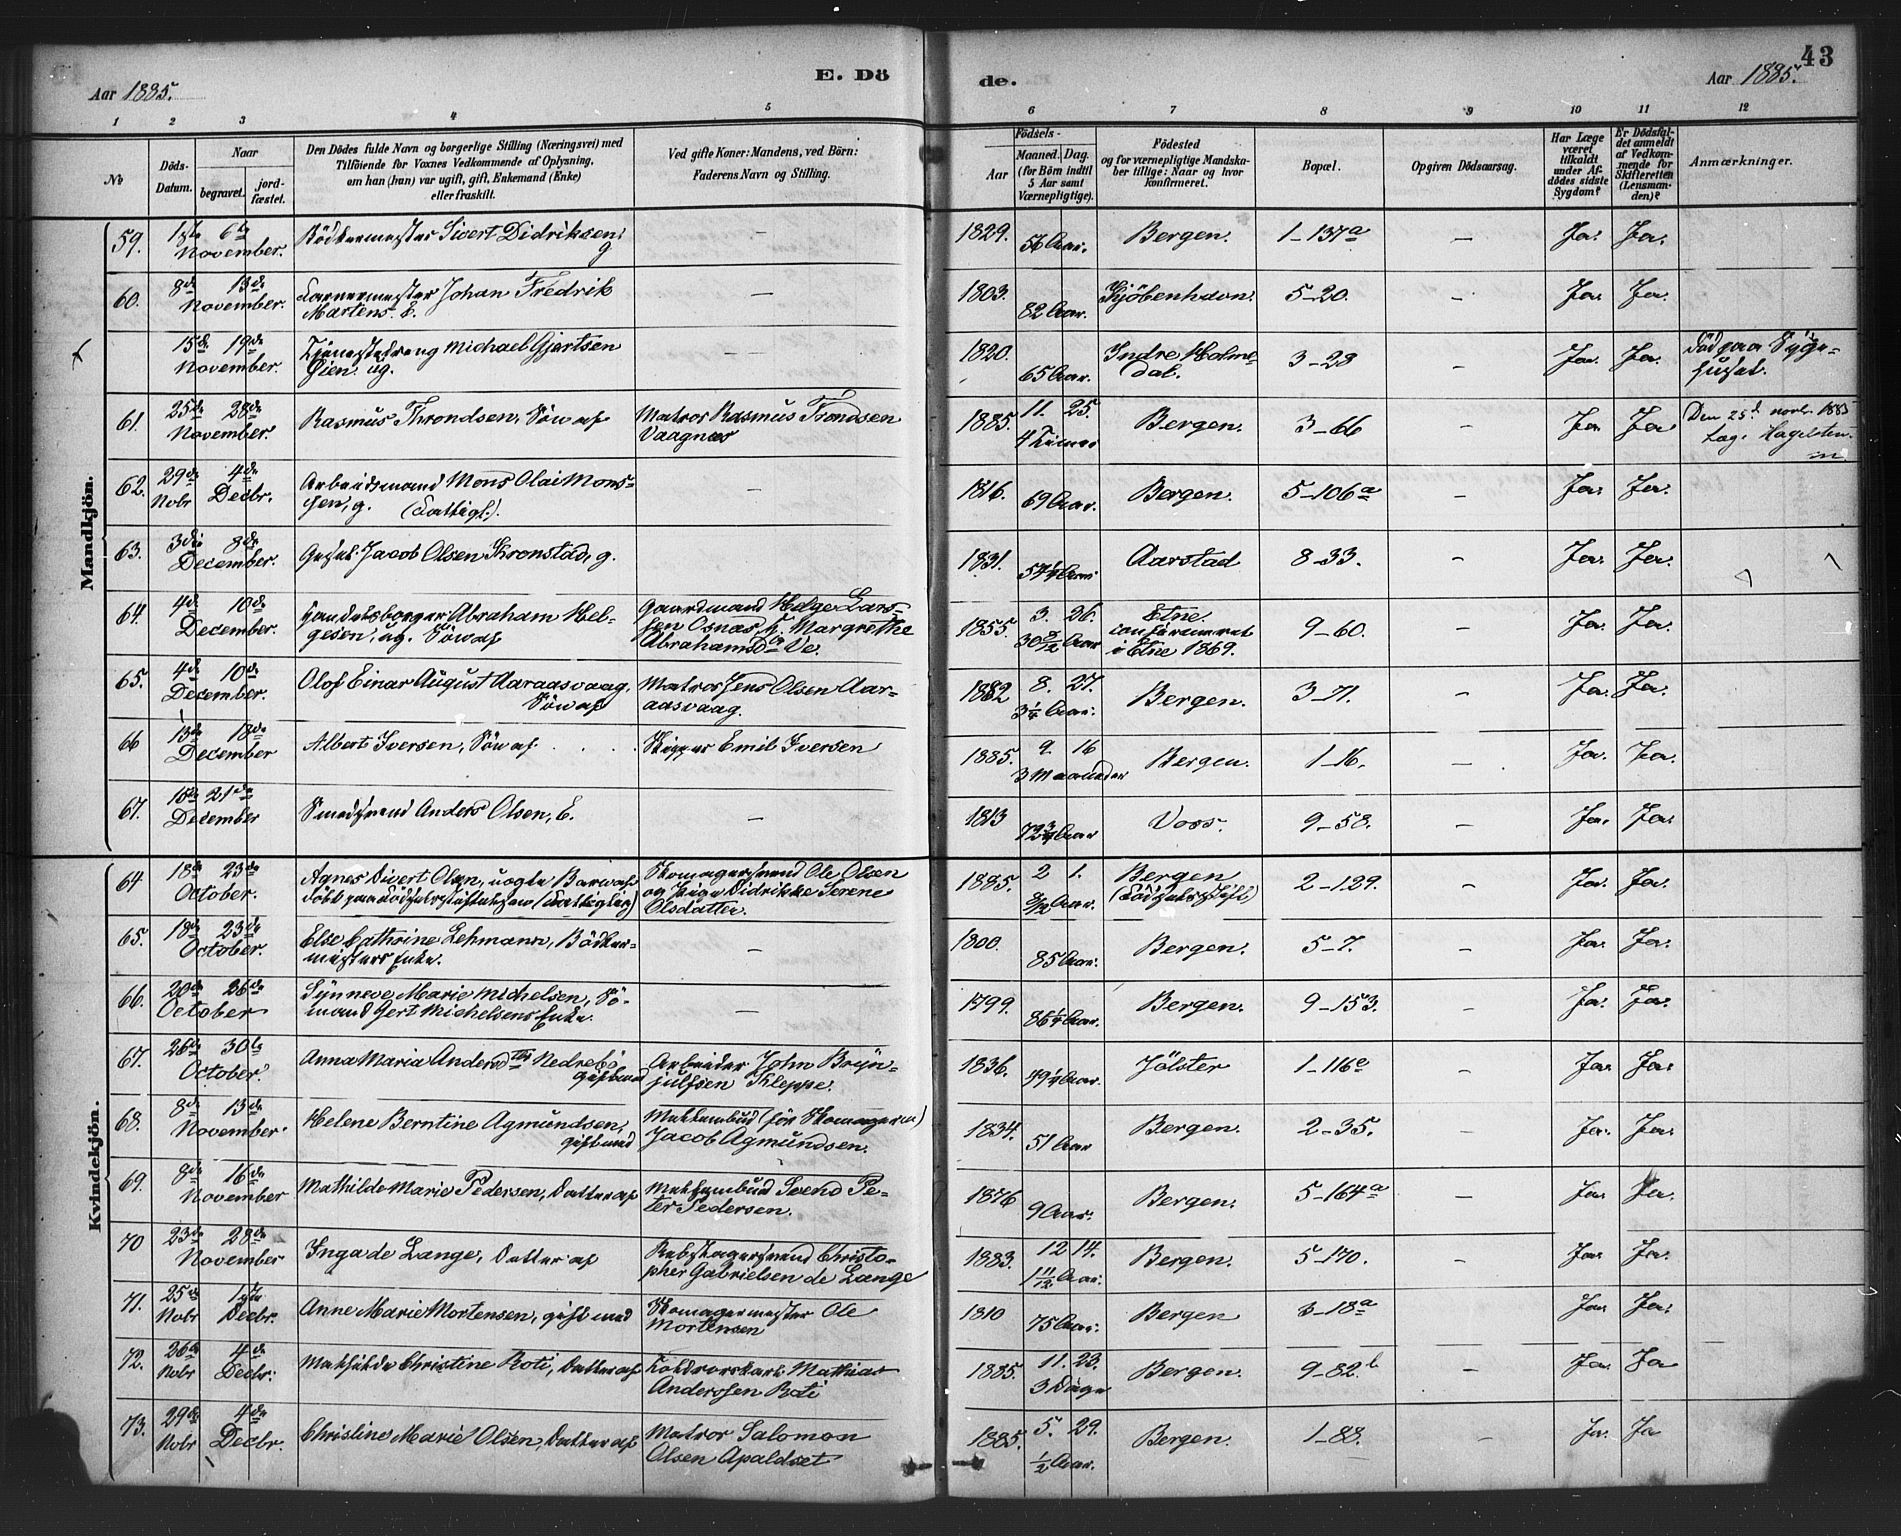 43
E. Dö
de.
Aar 1885.
Aar 1885.
1 2 3 4 5 6 7 8 9 10 11 12
No
Döds-
Datum.
Naar
begravet.
jord-
fæstet.
Den Dödes fulde Navn og borgerlige Stilling (Næringsvei) med
Tilföiende for Voxnes Vedkommende af Oplysning,
om han (hun) var ugift, gift, Enkemand (Enke)
eller fraskilt.
Ved gifte Koner: Mandens, ved Börn:
Faderens Navn og Stilling.
Födsels-
Aar
Maaned. Dag.
(for Börn indtil
5 Aar samt
Værnepligtige).
Födested
og for værnepligtige Mandska-
ber tillige: Naar og hvor
konfirmeret.
Bopæl.
Opgiven Dödsaarsag.
Har Læge
været
tilkaldt
under Af-
dödes sidste
Sygdom?
Er Dödsfal-
det anmeldt
af Vedkom-
mende for
Skifteretten
(Lensman-
den)?
Anmærkninger.
Mandkjön.
59. 1ste 6te November. Bödkermester Sivert Didriksen, g — 1829. 56 Aar. Bergen. 1–137a — Ja. Ja.
60. 8de 13de November. Johan Fredrik
Martens. E. — 1803. 82 Aar. Kjöbenhavn. 5–20. — Ja. Ja.
15de 19de November. Tjenestedreng Michael Gjertsen
Öien. ug. — 1820. 65 Aar. Indre Holme-
dal. 3–28 — Ja. Ja. Död paa Syge-
huset.
61. 25de 28de November. Rasmus Throndsen, Sön af Matros Rasmus Trondsen
Vaagnæs 1885. 11. 25. 4 Timer Bergen. 3–66 — Ja Ja Den 25d. novbr. 1885
Hagelsten.
62. 29de Nobr 4de Decbr. Arbeidsmand Mons Olai Mons-
sen, g. (Fattigl.) — 1816. 69 Aar. Bergen. 5–106a — Ja. Ja.
63. 3die 8de December. Jacob Olsen Kronstad, g. 1831. 54¼ Aar Aarstad 8–33. — Ja. Ja.
64. 4de 10de December. Handelsborger Abraham Hel-
gesen, ug. Sön af Gaardmand Helge Lars-
sen Osnæs, h. Margrethe
Abrahamsd. Ve. 1855. 3. 26. 30 8/12 Aar Etne.
confirmeret
i Etne 1869. 9–60. — Ja. Ja.
65. 4de 10de December. Olof Einar August Aaraasvaag.
Sön af Matros Jens Olsen Aar-
aasvaag. 1882 8. 27. 3¼ Aar. Bergen. 3–71. — Ja. Ja.
66 13de 18de December Albert Iversen, Sön af . . . . Skipper Emil Iversen 1885. 9. 16 3 Maaneder Bergen. 1–16. — Ja. Ja.
67. 16de 21de December Smedsvend Anders Olsen, E. — 1813 72¾ Aar Voss. 9–58. — Ja. Ja.
Kvindekjön.
64 18de 23de October. Agnes Sivert Olsen, uægte Barn af
Födt paa Födselsstiftelsen (Fattiglig) Skomagersvend Ole Olsen
og Pige Didrikke Serene
Olsdatter. 1885. 2 1. 8/12 Aar. Bergen
(Födselsstift) 2–129. — Ja. Ja.
65. 18de 23de October. Else Cathrine Lehmann, Bödker-
mesters Enke. — 1800. 85 Aar. Bergen. 5–7. — Ja. Ja.
66. 20de 26de October Synneve Marie Michelsen, Sö-
mand Gert Michelsens Enke. — 1799. 86¼ Aar. Bergen. 9–153. — Ja. Ja.
67. 26de 30te October. Anna Maria Andersdtr Nedrebö
gift med Arbeider John Bryn-
julfsen Kleppe. 1836. 49¼ Aar. Jölster 1–116c — Ja. Ja.
68. 8de 13de November. Helene Berntine Agmundsen,
gift med Mæklerbud (för Skomager)
Jacob Agmundsen. 1834. 51 Aar Bergen. 2–35. — Ja. Ja.
69. 8de 16de November Mathilde Marie Pedersen, Datter af Svend Pe-
ter Pedersen. 1876 9 Aar. Bergen. 5–164a — Ja. Ja.
70 23de 28de November Inga de Lange, Datter af Rebslagersvend Christo-
pher Gabrielsen de Lange 1883. 12 14. 1 11/12 Aar. Bergen. 5–170. — Ja. Ja.
71. 25de Nobr 1ste Decbr. Anne Marie Mortensen, gift med Skomagermester Ole
Mortensen 1810 75 Aar. Bergen 3–18a — Ja. Ja.
72. 26de Nobr 4de Decbr. Mathilde Christine Roti, Datter af Mathias
Anderssen Roti 1885. 11. 23. 3 Dage Bergen. 9–82b — Ja. Ja
73. 29de Nobr 4de Decbr. Christine Marie Olsen, Datter af Matros Salomon
Olsen Apaldset 1885. 5. 29. ½ Aar. Bergen. 1–88. — Ja. Ja